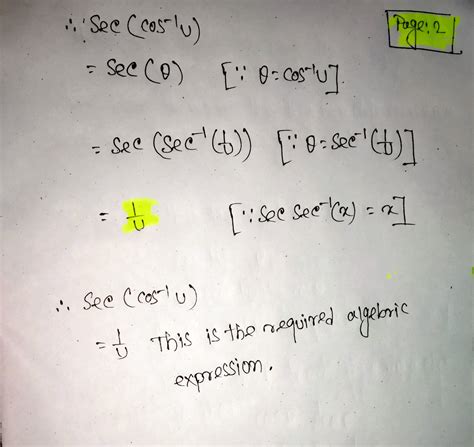 Page: 2
∴ Sec (cos⁻¹u)
= Sec (θ) [∵ θ = cos⁻¹u]
= Sec (Sec⁻¹(1/u)) [∵ θ = Sec⁻¹(1/u)]
= 1/u [∵ Sec Sec⁻¹(x) = x]
∴ Sec (cos⁻¹u)
= 1/u This is the required algebric
expression.